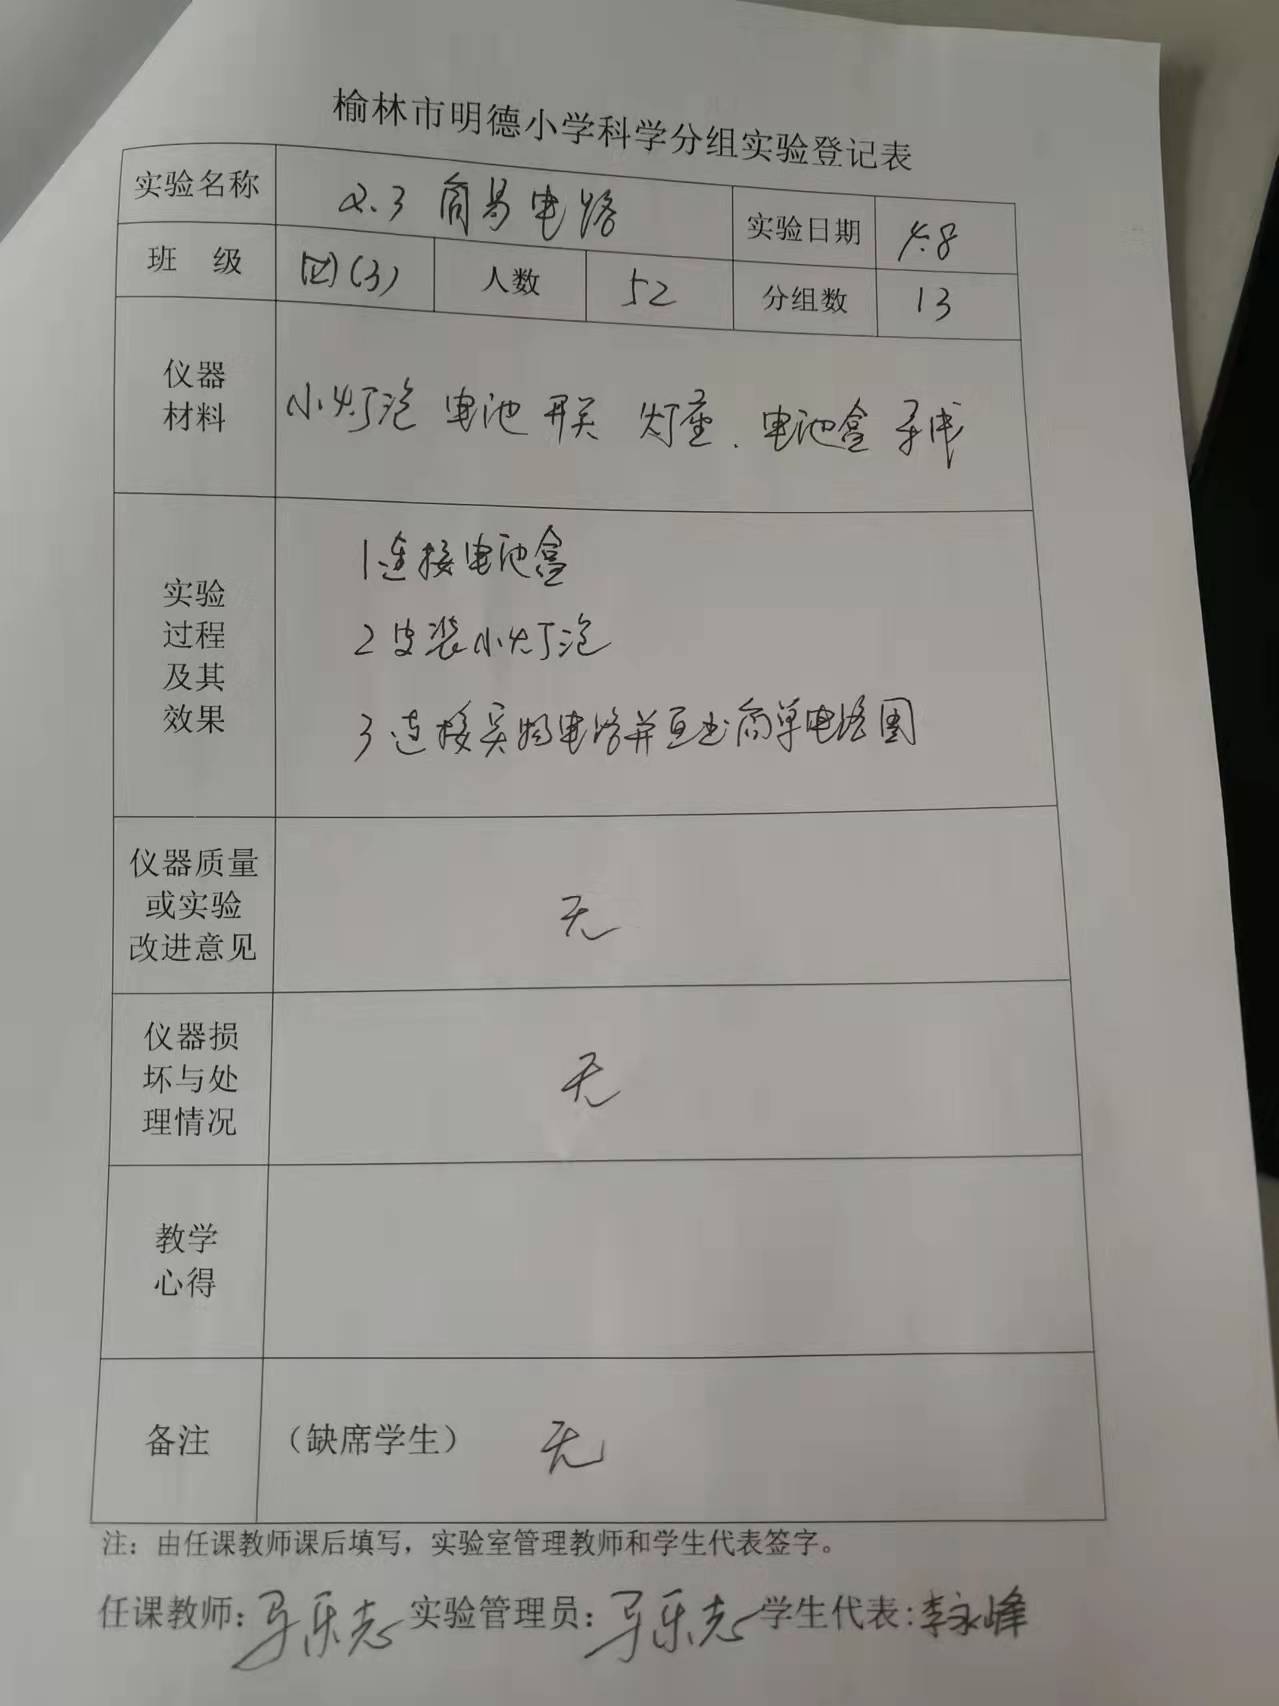 榆林市明德小学科学分组实验登记表
实验名称 2.3 简易电路 实验日期
班 级 四(3) 人数 52 分组数 13
仪器
材料
小灯泡 电池 开关 灯座、电池盒 导线
实验
过程
及其
效果
1 连接电池盒
2 安装小灯泡
3 连接实物电路并画出简单电路图
仪器质量
或实验
改进意见
无
仪器损
坏与处
理情况
无
教学
心得
备注 （缺席学生） 无
注：由任课教师课后填写，实验室管理教师和学生代表签字。
任课教师:马乐志 实验管理员:马乐志 学生代表:李永峰